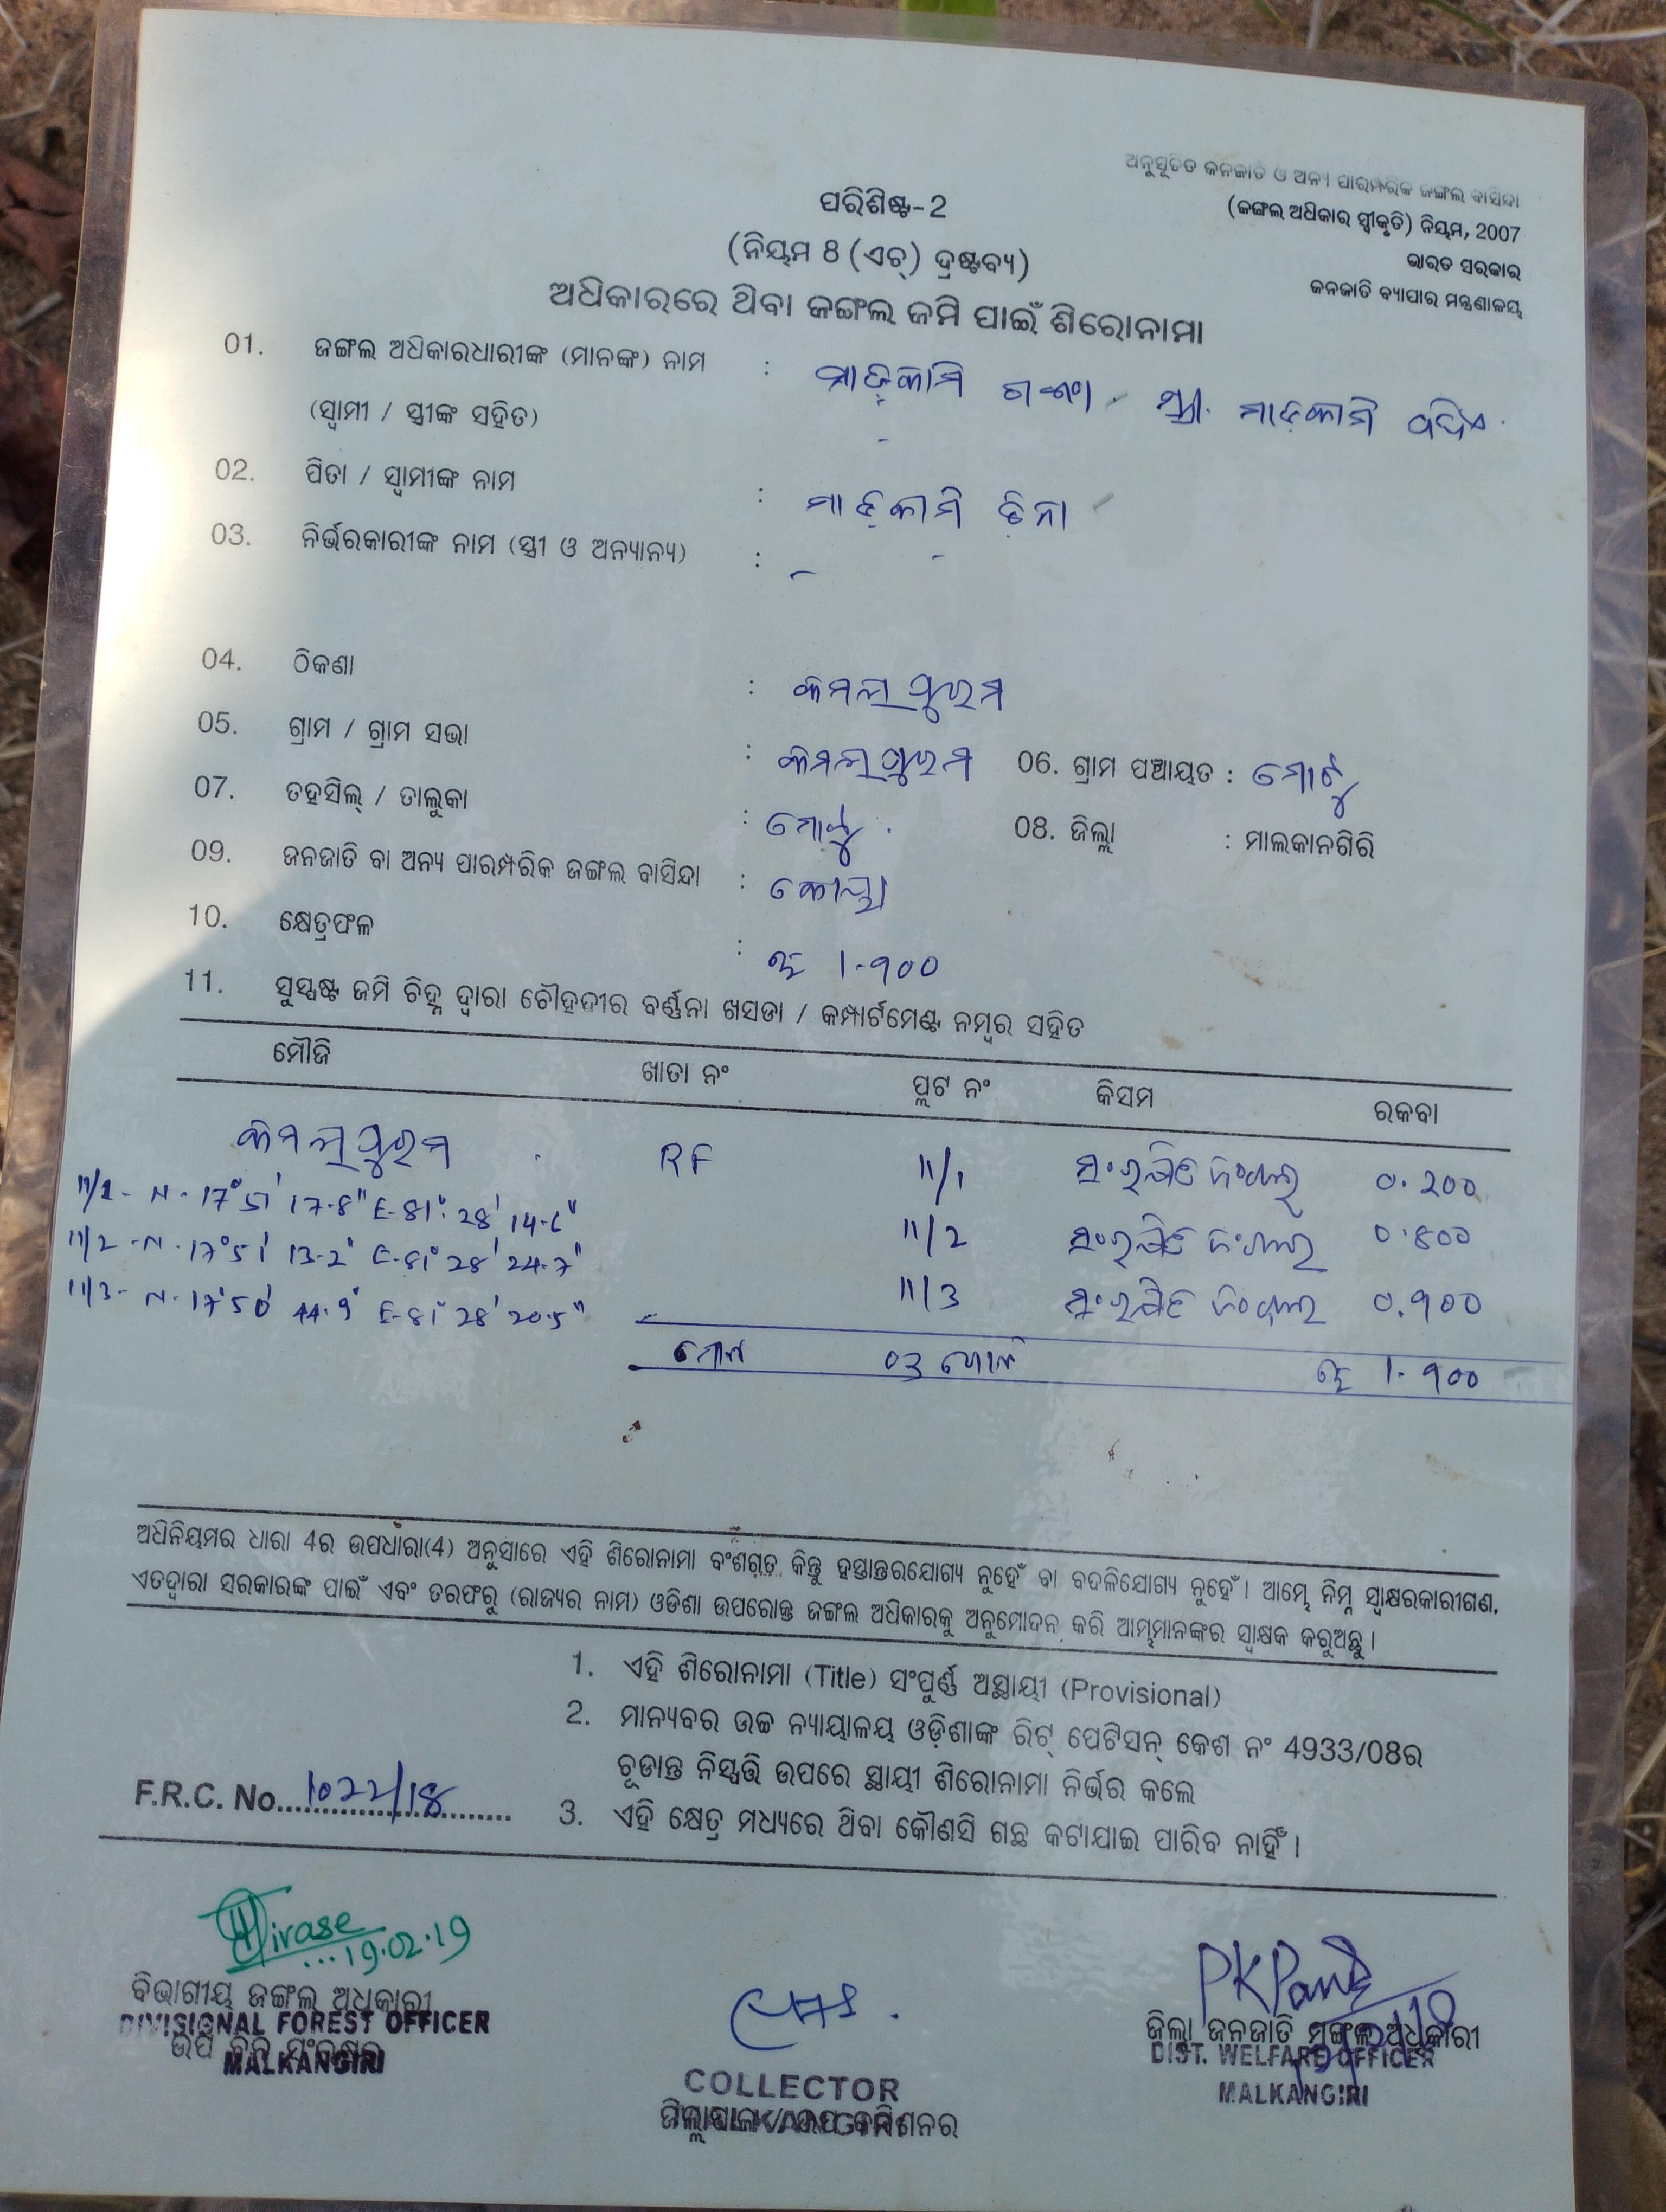 ଅନୁସୂଚିତ ଜନଜାତି ଓ ଅନ୍ୟ ପାରମ୍ପରିକ ଜଙ୍ଗଲ ବାସିନ୍ଦା
(ଜଙ୍ଗଲ ଅଧିକାର ସ୍ୱୀକୃତି) ନିୟମ, 2007
ଭାରତ ସରକାର
ଜନଜାତି ବ୍ୟାପାର ମନ୍ତ୍ରଣାଳୟ
ପରିଶିଷ୍ଟ-2
(ନିୟମ 8 (ଏଚ୍) ଦ୍ରଷ୍ଟବ୍ୟ)
ଅଧିକାରରେ ଥିବା ଜଙ୍ଗଲ ଜମି ପାଇଁ ଶିରୋନାମା
01. ଜଙ୍ଗଲ ଅଧିକାରଧାରୀଙ୍କ (ମାନଙ୍କ) ନାମ : ମାଡ଼କାମି ଗଙ୍ଗା ସ୍ତ୍ରୀ. ମାଡ଼କାମି
(ସ୍ୱାମୀ / ସ୍ତ୍ରୀଙ୍କ ସହିତ)
02. ପିତା / ସ୍ୱାମୀଙ୍କ ନାମ : ମାଡ଼କାମି
03. ନିର୍ଭରକାରୀଙ୍କ ନାମ (ସ୍ତ୍ରୀ ଓ ଅନ୍ୟାନ୍ୟ) : –
04. ଠିକଣା : କମଲାପୁରମ
05. ଗ୍ରାମ / ଗ୍ରାମ ସଭା : କମଲାପୁରମ 06. ଗ୍ରାମ ପଞ୍ଚାୟତ : ମୋଟୁ
07. ତହସିଲ୍ / ତାଲୁକା : ମୋଟୁ 08. ଜିଲ୍ଲା : ମାଲକାନଗିରି
09. ଜନଜାତି ବା ଅନ୍ୟ ପାରମ୍ପରିକ ଜଙ୍ଗଲ ବାସିନ୍ଦା : କୋୟା
10. କ୍ଷେତ୍ରଫଳ : ଏ 1.900
11. ସୁସ୍ପଷ୍ଟ ଜମି ଚିହ୍ନ ଦ୍ୱାରା ଚୌହଦୀର ବର୍ଣ୍ଣନା ଖସଡା / କମ୍ପାର୍ଟମେଣ୍ଟ ନମ୍ବର ସହିତ
ମୌଜି ଖାତା ନଂ ପ୍ଲଟ ନଂ କିସମ ରକବା
କମଲାପୁରମ RF 11/1 ସଂରକ୍ଷିତ ଜଂଗଲ 0.200
11/1 - N - 17° 51' 17.8" E-81° 28' 14.6"
11/2 ସଂରକ୍ଷିତ ଜଂଗଲ 0.800
11/2 - N - 17° 51' 13.2" E-81° 28' 24.7"
11/3 ସଂରକ୍ଷିତ ଜଂଗଲ 0.900
11/3 - N - 17° 50' 44.9" E-81° 28' 20.5"
ମୋଟ 03 ପ୍ଲଟ ଏ 1.900
ଅଧିନିୟମର ଧାରା 4ର ଉପଧାରା(4) ଅନୁସାରେ ଏହି ଶିରୋନାମା ବଂଶଗତ କିନ୍ତୁ ହସ୍ତାନ୍ତରଯୋଗ୍ୟ ନୁହେଁ ବା ବଦଳିଯୋଗ୍ୟ ନୁହେଁ । ଆମ୍ଭେ ନିମ୍ନ ସ୍ୱାକ୍ଷରକାରୀଗଣ,
ଏତଦ୍ୱାରା ସରକାରଙ୍କ ପାଇଁ ଏବଂ ତରଫରୁ (ରାଜ୍ୟର ନାମ) ଓଡିଶା ଉପରୋକ୍ତ ଜଙ୍ଗଲ ଅଧିକାରକୁ ଅନୁମୋଦନ କରି ଆମ୍ଭମାନଙ୍କର ସ୍ୱାକ୍ଷକ କରୁଅଛୁ ।
1. ଏହି ଶିରୋନାମା (Title) ସଂପୂର୍ଣ୍ଣ ଅସ୍ଥାୟୀ (Provisional)
2. ମାନ୍ୟବର ଉଚ୍ଚ ନ୍ୟାୟାଳୟ ଓଡ଼ିଶାଙ୍କ ରିଟ୍ ପେଟିସନ୍ କେଶ ନଂ 4933/08ର
ଚୂଡାନ୍ତ ନିସ୍ପତ୍ତି ଉପରେ ସ୍ଥାୟୀ ଶିରୋନାମା ନିର୍ଭର କଲେ
3. ଏହି କ୍ଷେତ୍ର ମଧ୍ୟରେ ଥିବା କୌଣସି ଗଛ କଟାଯାଇ ପାରିବ ନାହିଁ ।
F.R.C. No. 1022/18
19.02.19
ବିଭାଗୀୟ ଜଙ୍ଗଲ ଅଧିକାରୀ
DIVISIONAL FOREST OFFICER
MALKANGIRI
COLLECTOR
ଜିଲ୍ଲା ଜନଜାତି ମଙ୍ଗଳ ଅଧିକାରୀ
DIST. WELFARE OFFICER
MALKANGIRI